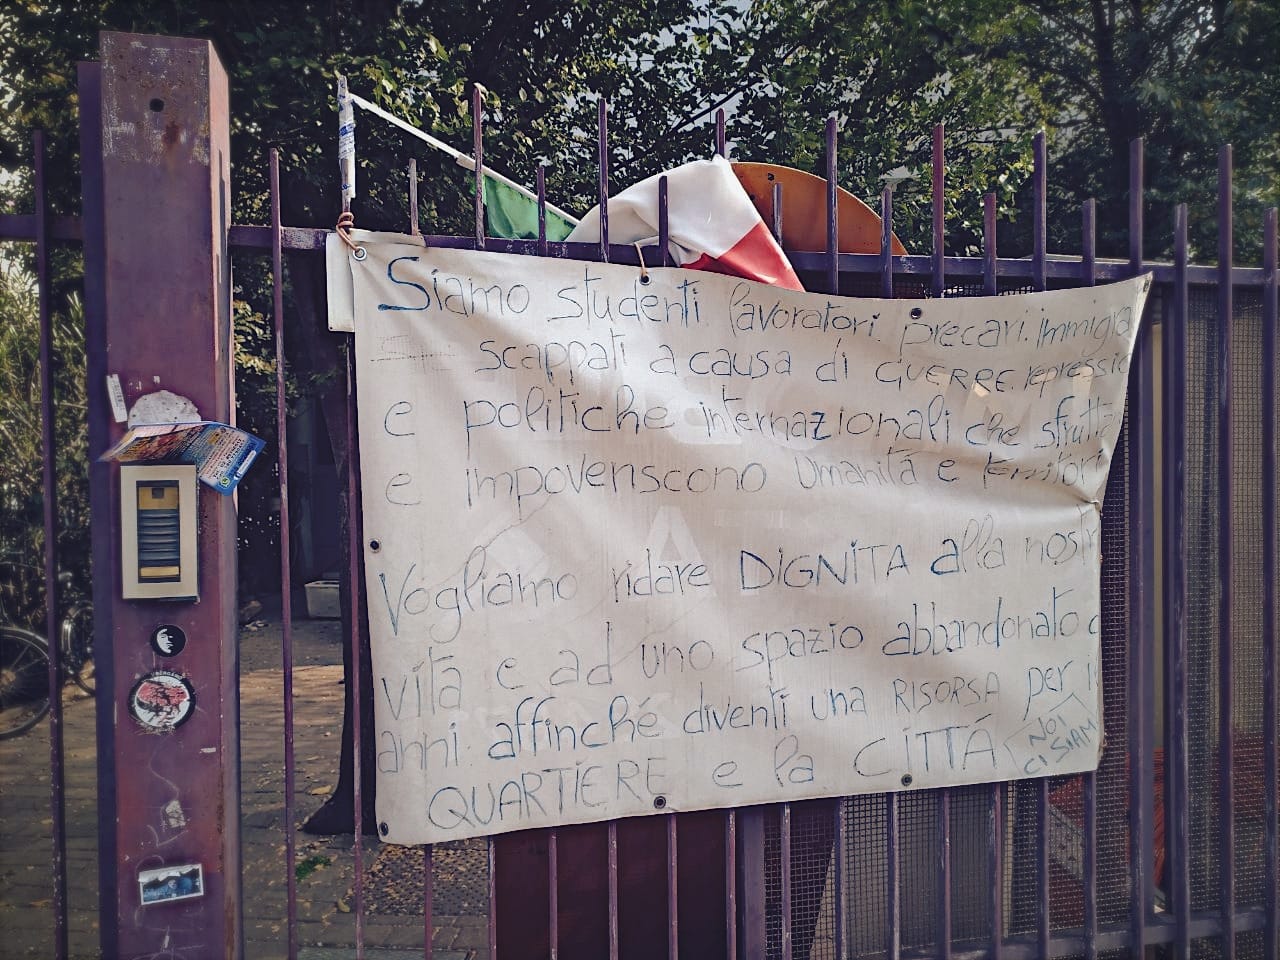 Siamo studenti lavoratori precari. immigra
scappati a causa di GUERRE. repressio
e politiche internazionali che sfrutta
e impoveriscono umanità e territori
Vogliamo ridare DIGNITA alla nostr
vita e ad uno spazio abbandonato d
anni affinché diventi una RISORSA per il
QUARTIERE e la CITTÁ
NOI
CI SIAM